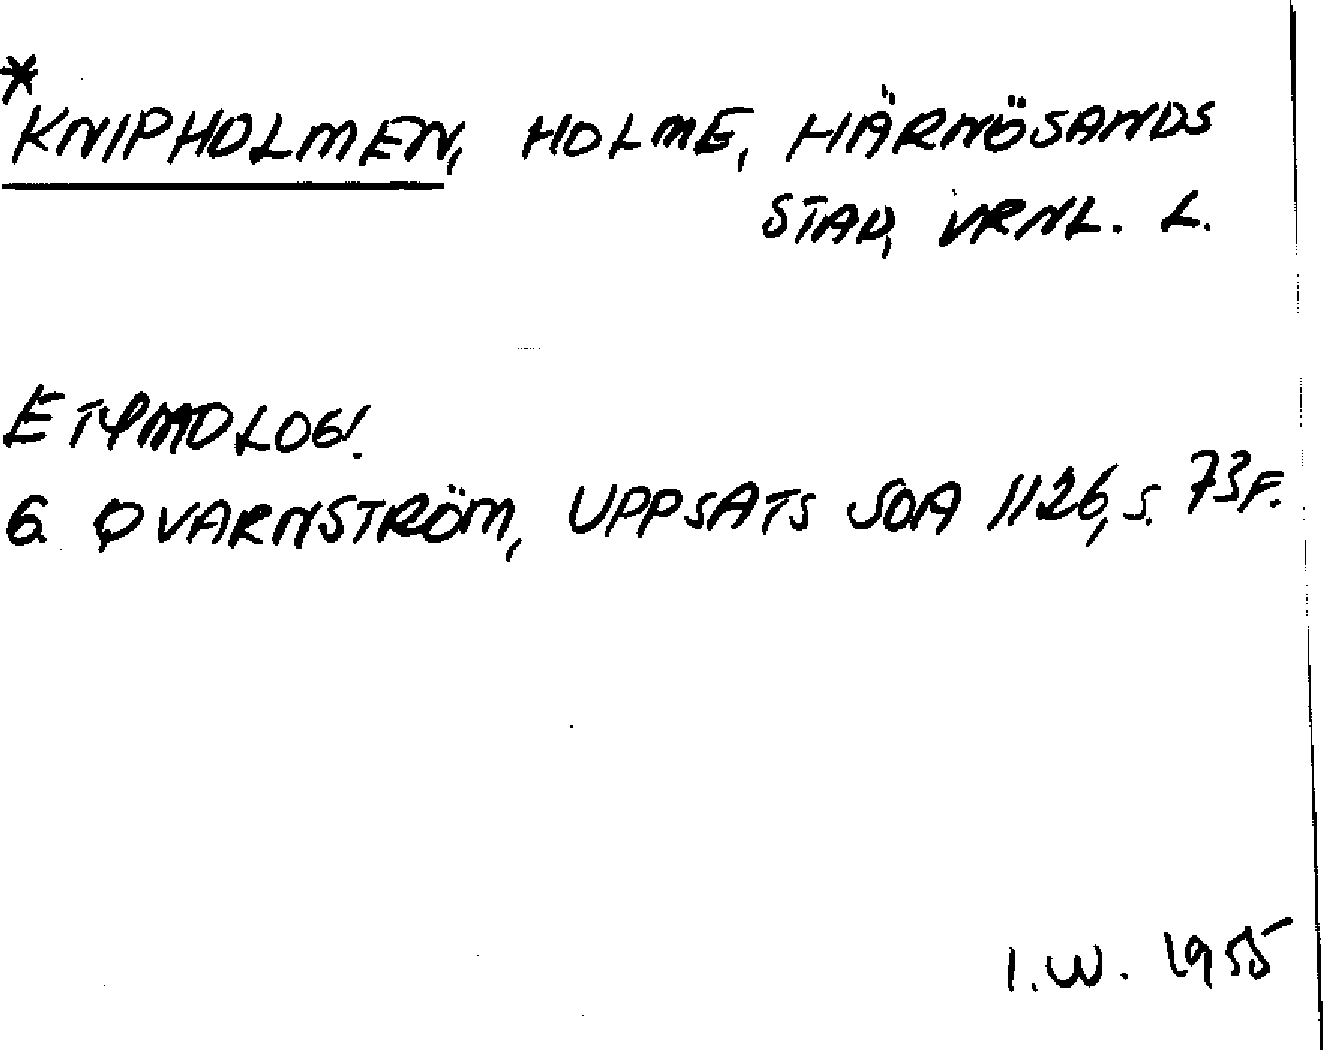 *KNIPHOLMEN, HOLME, HÄRNÖSANDS
STAD, VRNL. L.
ETYMOLOGI.
G. QVARNSTRÖM, UPPSATS SOA 1126, S. 73 F.
I.W. 1955